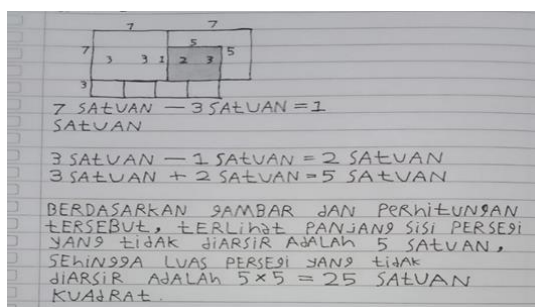 7 7
7 5 5
3 3 1 2 3
3
7 SATUAN - 3 SATUAN = 1
SATUAN
3 SATUAN - 1 SATUAN = 2 SATUAN
3 SATUAN + 2 SATUAN = 5 SATUAN
BERDASARKAN GAMBAR DAN PERHITUNGAN
TERSEBUT, TERLIHAT PANJANG SISI PERSEGI
YANG TIDAK DIARSIR ADALAH 5 SATUAN,
SEHINGGA LUAS PERSEGI YANG TIDAK
DIARSIR ADALAH 5 × 5 = 25 SATUAN
KUADRAT.